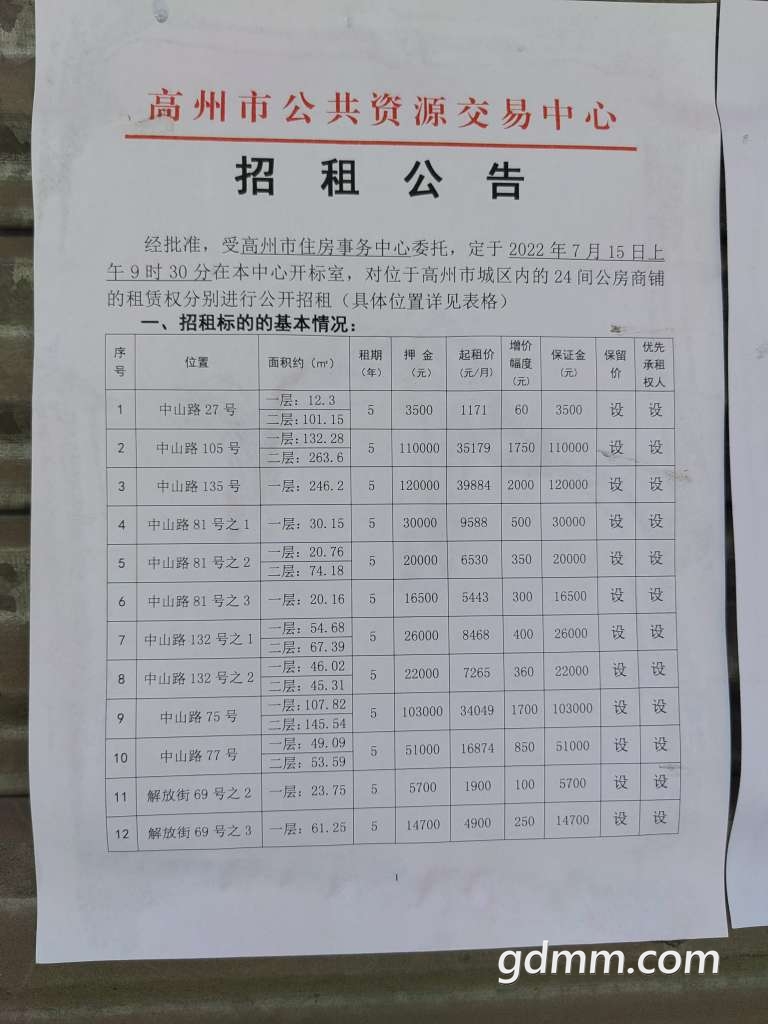 高州市公共资源交易中心
招租公告
经批准，受高州市住房事务中心委托，定于2022年7月15日上
午9时30分在本中心开标室，对位于高州市城区内的24间公房商铺
的租赁权分别进行公开招租（具体位置详见表格）
一、招租标的的基本情况：
序号 位置 面积约（㎡） 租期（年） 押金（元） 起租价（元/月） 增价幅度（元） 保证金（元） 保留价 优先承租权人
1 中山路27号 一层：12.3 二层：101.15 5 3500 1171 60 3500 设 设
2 中山路105号 一层：132.28 二层：263.6 5 110000 35179 1750 110000 设 设
3 中山路135号 一层：246.2 5 120000 39884 2000 120000 设 设
4 中山路81号之1 一层：30.15 5 30000 9588 500 30000 设 设
5 中山路81号之2 一层：20.76 二层：74.18 5 20000 6530 350 20000 设 设
6 中山路81号之3 一层：20.16 5 16500 5443 300 16500 设 设
7 中山路132号之1 一层：54.68 二层：67.39 5 26000 8468 400 26000 设 设
8 中山路132号之2 一层：46.02 二层：45.31 5 22000 7265 360 22000 设 设
9 中山路75号 一层：107.82 二层：145.54 5 103000 34049 1700 103000 设 设
10 中山路77号 一层：49.09 二层：53.59 5 51000 16874 850 51000 设 设
11 解放街69号之2 一层：23.75 5 5700 1900 100 5700 设 设
12 解放街69号之3 一层：61.25 5 14700 4900 250 14700 设 设
1
gdmm.com